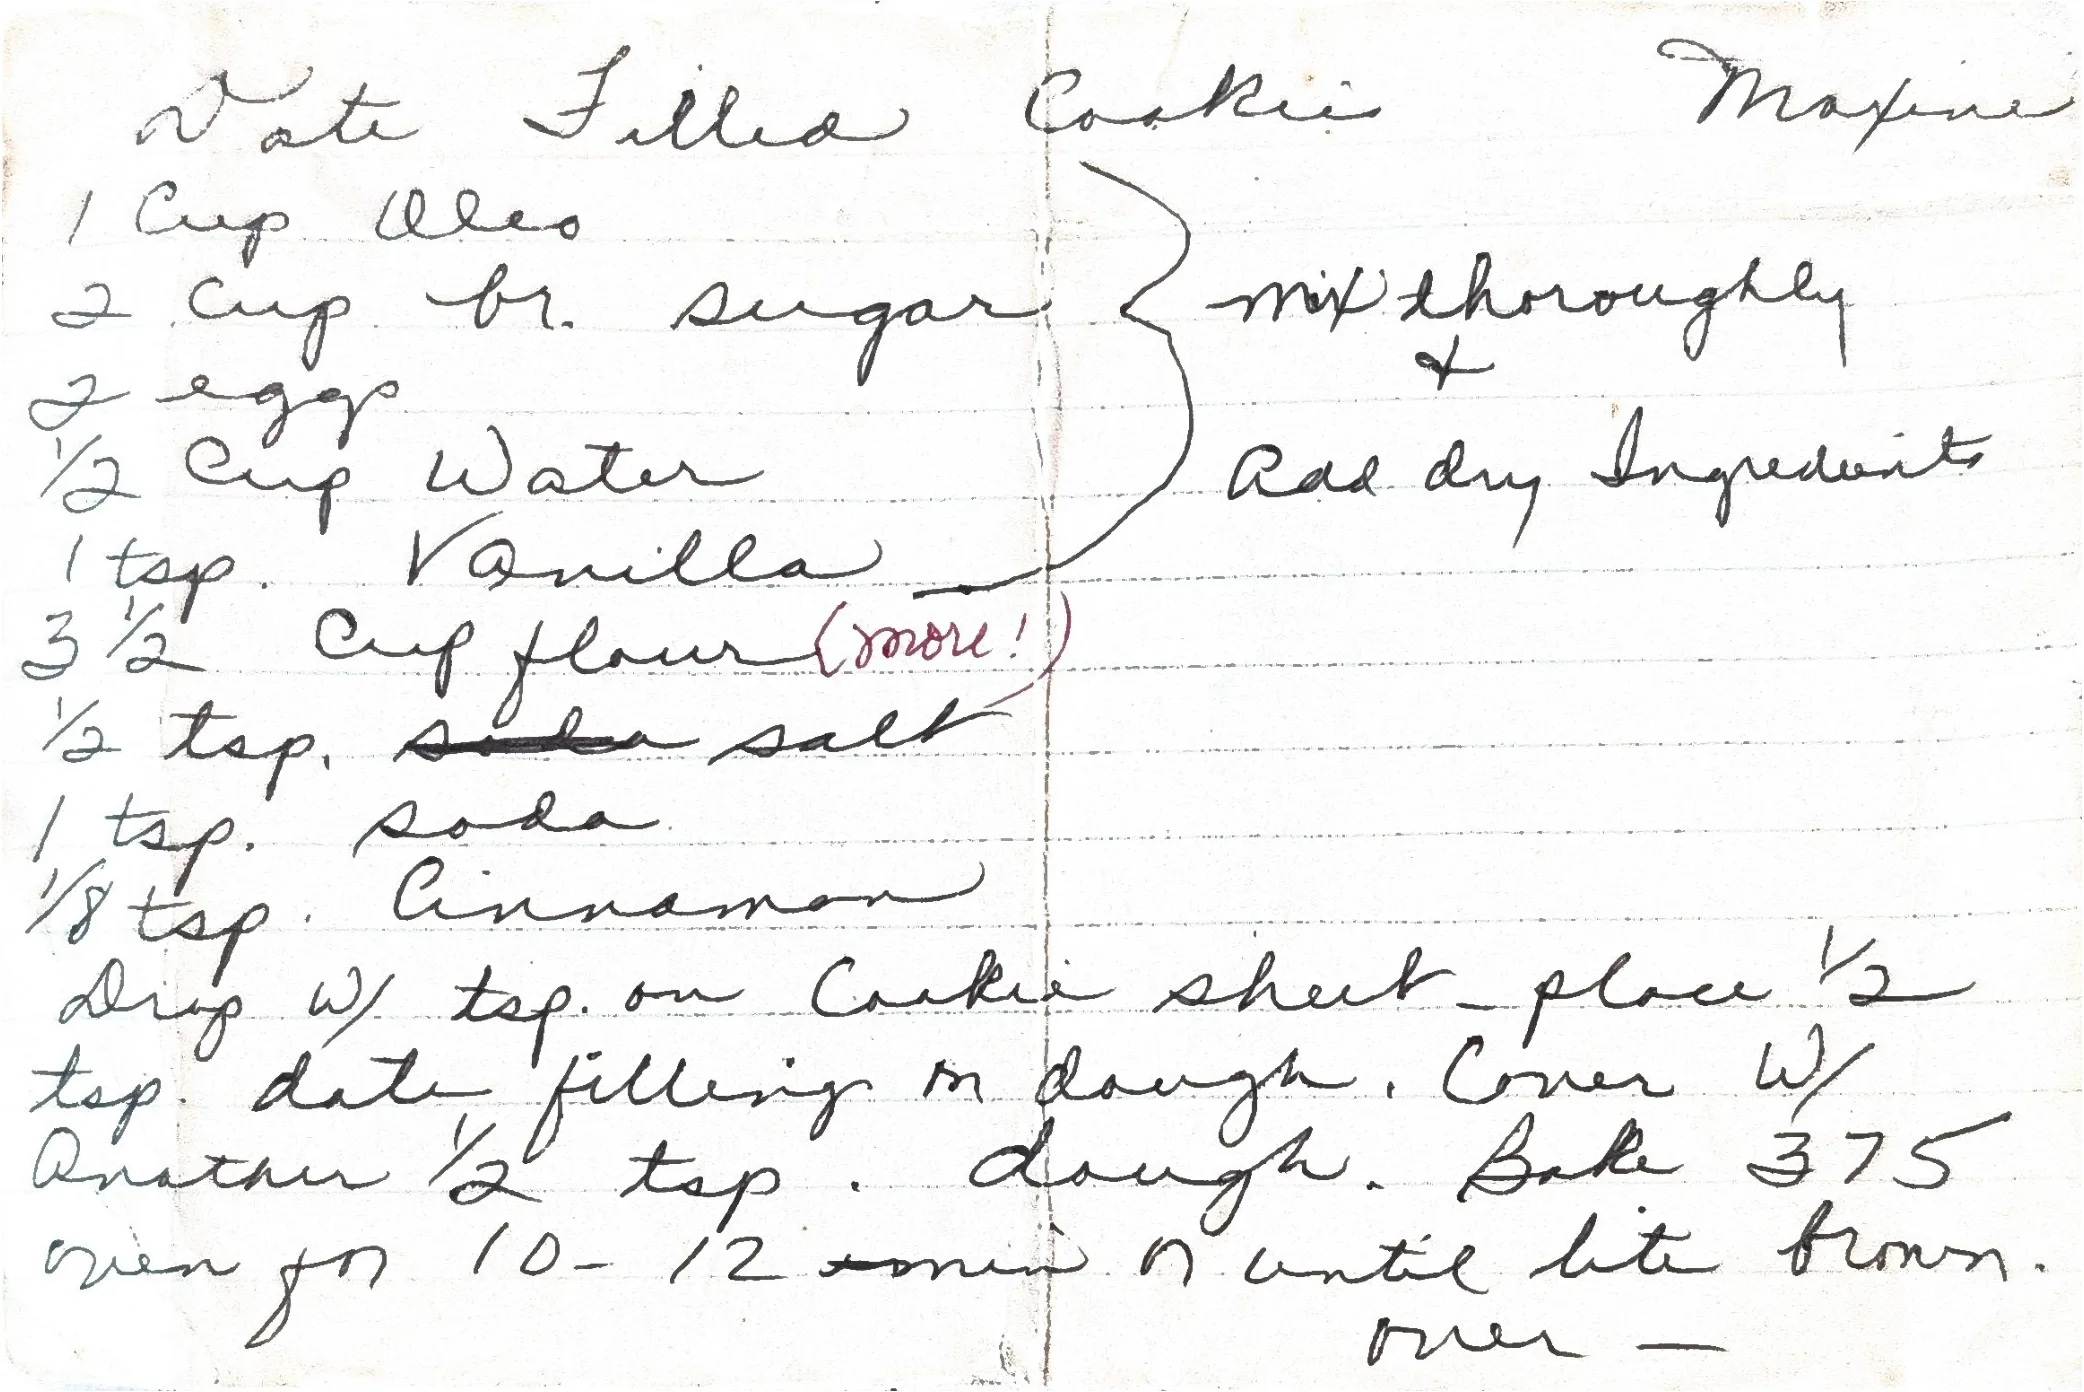 Date Filled Cookie Maxine
1 Cup Oleo
2 cup br. sugar
mix thoroughly
&
2 eggs
1/2 Cup Water
Add dry Ingredients
1 tsp. Vanilla
3 1/2 Cup flour (more!)
1/2 tsp. soda salt
1 tsp. soda
1/8 tsp. Cinnamon
Drop w/ tsp. on Cookie sheet - place 1/2
tsp. date filling on dough. Cover w/
Another 1/2 tsp. dough. Bake 375
oven for 10-12 min or until lite brown.
over —